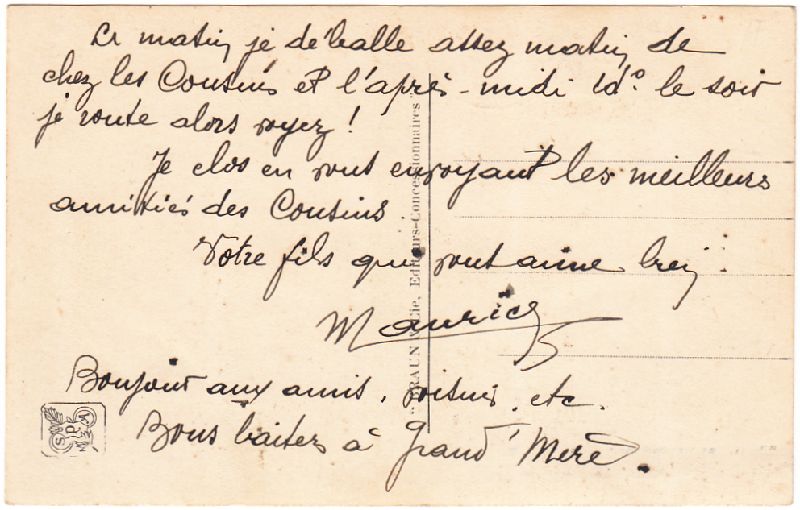 Le matin, je déballe assez matin de
chez les Cousins et l'après-midi id° le soir
je route alors voyez !
Je clos en vous envoyant les meilleurs
amitiés des Cousins
Votre fils qui vous aime bien.
Maurice
Bonjour aux amis, voisins, etc.
Bons baisers à Grand' Mère.
"BRAUN & Cie, Editeurs-Concessionnaires"